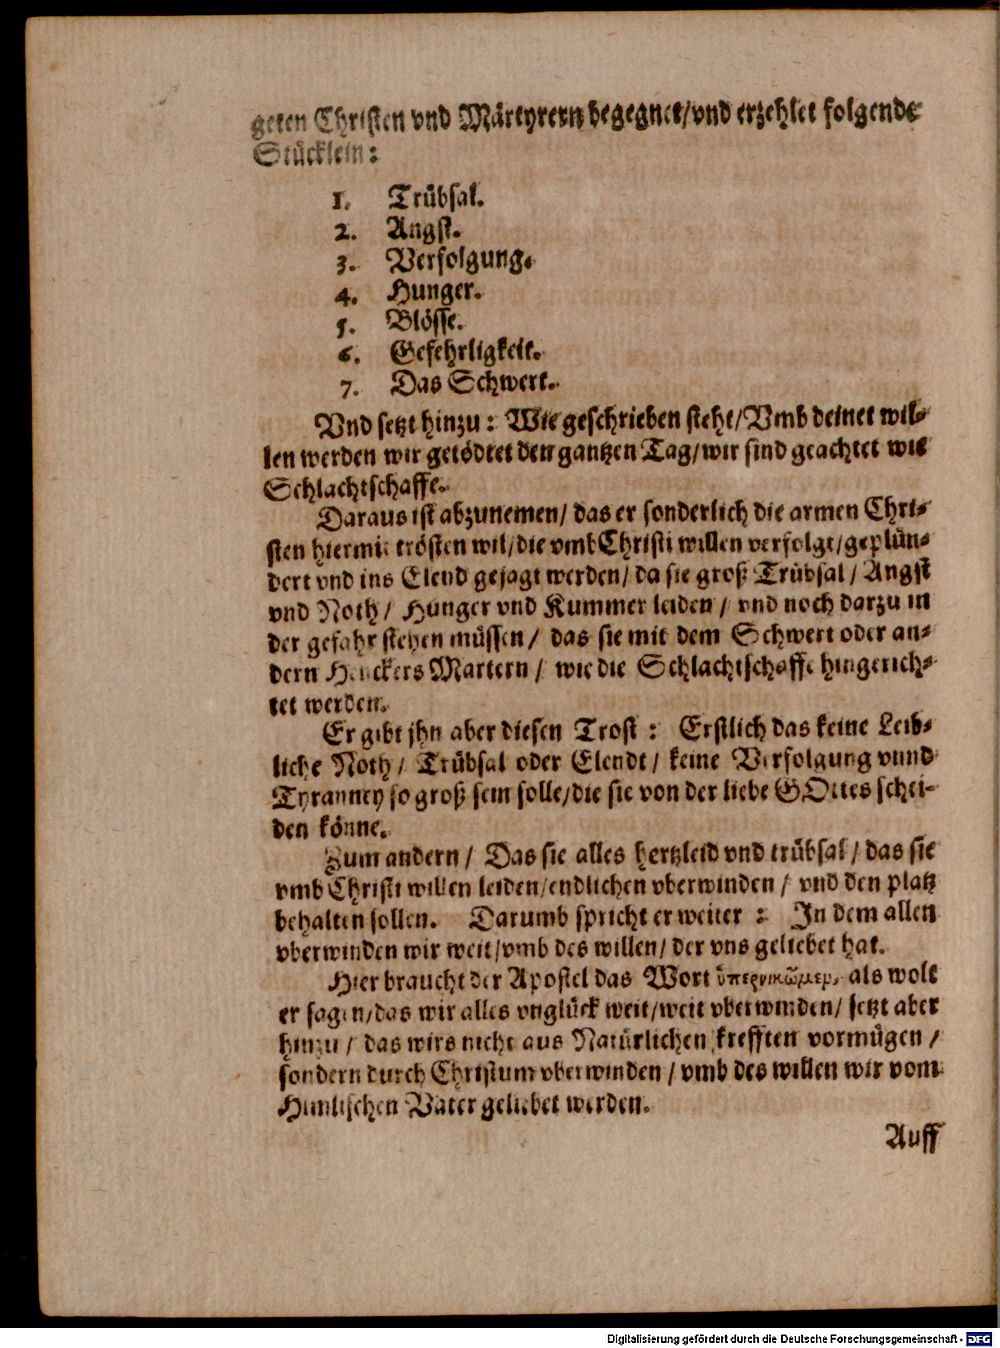 geten Christen vnd Märtyrern begegnet/vnd erzehlet folgende
Stücklein:
1. Trübsal.
2. Angst.
3. Verfolgung.
4. Hunger.
5. Blösse.
6. Gefehrligkeit.
7. Das Schwert.
Vnd setzt hinzu: Wie geschrieben steht/Vmb deinet wil-
len werden wir getödtet den gantzen Tag/wir sind geachtet wie
Schlachtschaffe.
Daraus ist abzunemen/ das er sonderlich die armen Chri-
sten hiermit trösten wil/die vmb Christi willen verfolgt/geplün-
dert vnd ins Elend gejagt werden/ da sie groß Trübsal/ Angst
vnd Noth/ Hunger vnd Kummer leiden/ vnd noch darzu in
der gefahr stehen müssen/ das sie mit dem Schwert oder an-
dern Henckers Martern/ wie die Schlachtschaffe hingerich-
tet werden.
Er gibt jhn aber diesen Trost: Erstlich das keine Leib-
liche Noth/ Trübsal oder Elendt/ keine Verfolgung vnnd
Tyranney so groß sein solle/die sie von der liebe GOttes schei-
den könne.
Zum andern/ Das sie alles hertzleid vnd trübsal/ das sie
vmb Christi willen leiden/endlichen vberwinden/ vnd den platz
behalten sollen. Darumb spricht er weiter: In dem allen
vberwinden wir weit/vmb des willen/ der vns geliebet hat.
Hier braucht der Apostel das Wort ὑπερνικῶμεν, als wolt
er sagen/das wir alles vnglück weit/weit vberwinden/ setzt aber
hinzu/ das wirs nicht aus Natürlichen krefften vormügen/
sondern durch Christum vberwinden/ vmb des willen wir vom
Himlischen Vater geliebet werden.
Auff
Digitalisierung gefördert durch die Deutsche Forschungsgemeinschaft - DFG